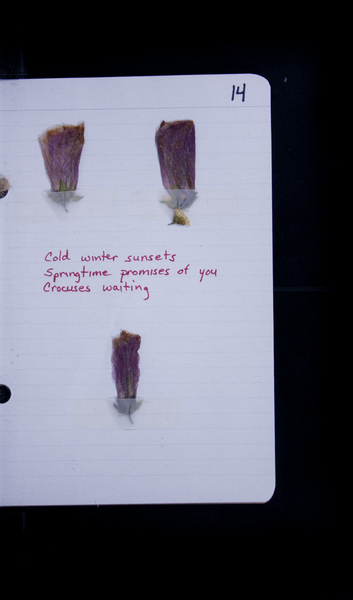 14
Cold winter sunsets
Springtime promises of you
Crocuses waiting